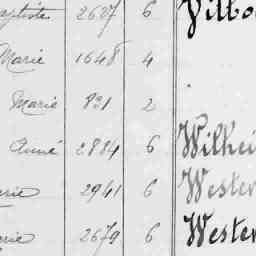 aptiste 2627 6 Vilbo
Marie 1648 4
Marie 831 2
Anné 2884 6 Wilhei
erie 2941 6 Wester
erie 2679 6 Wester